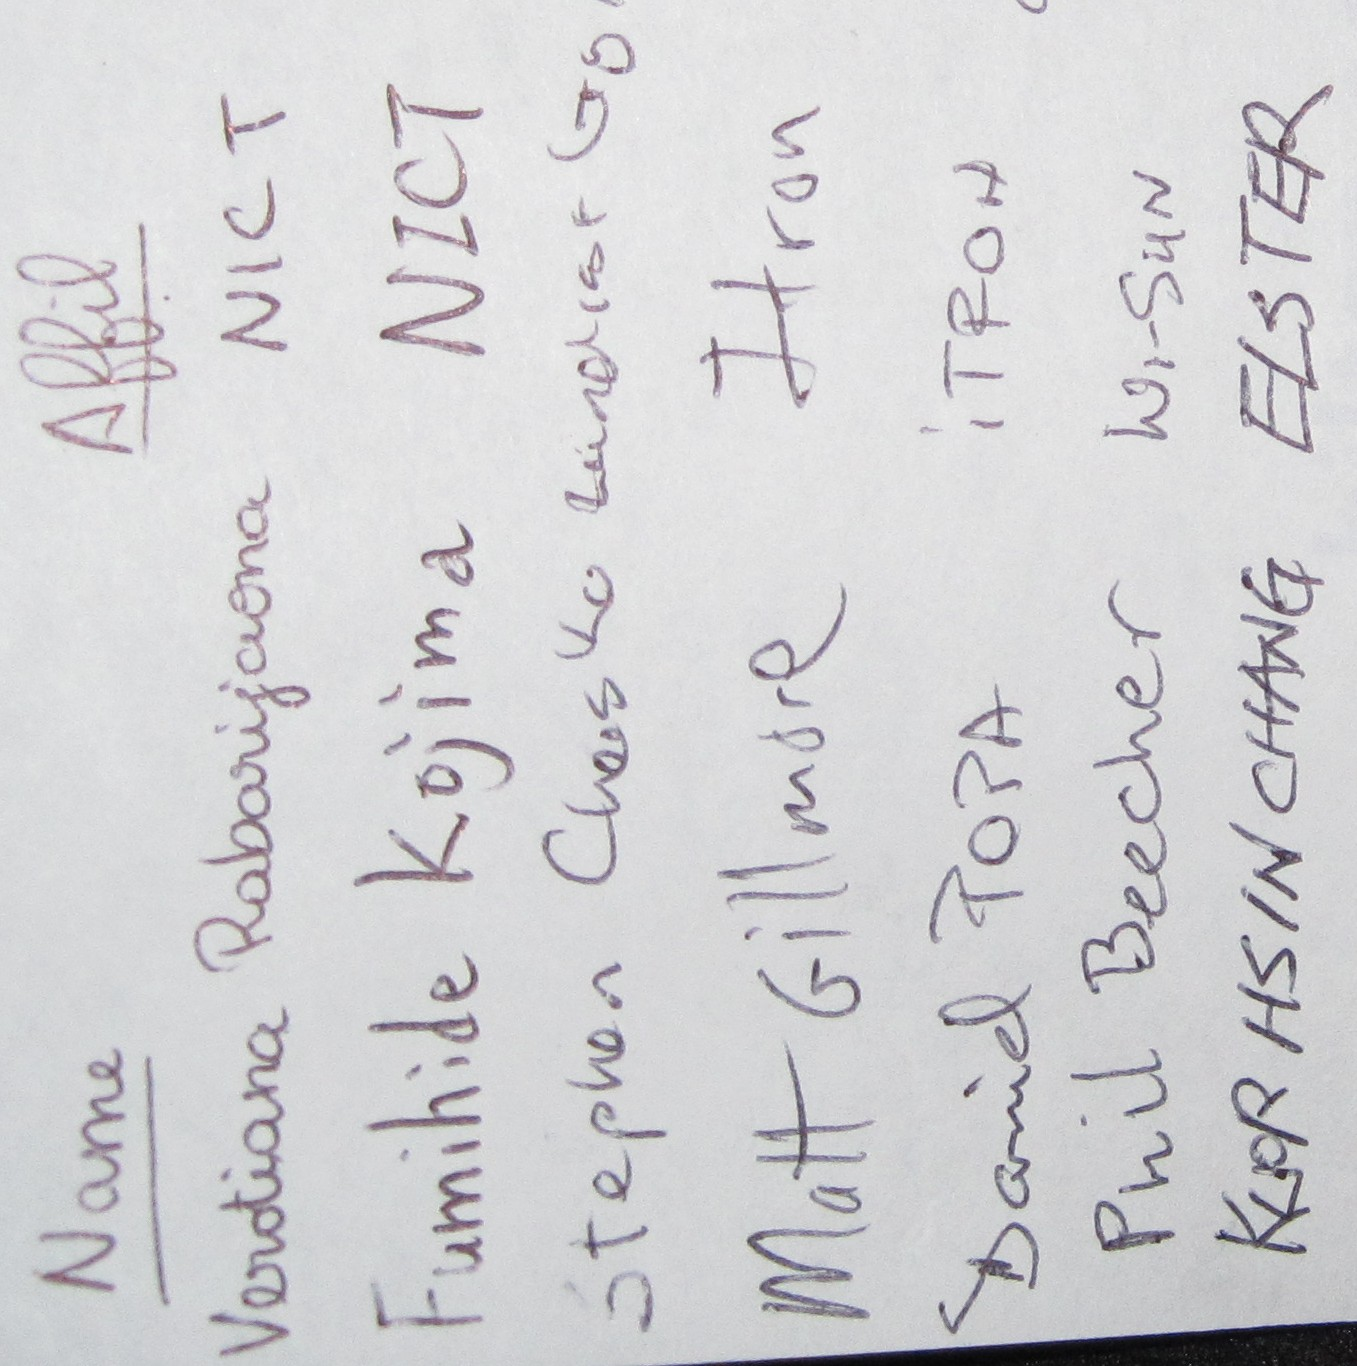 Name Affil
Verotiana Rabarijaona NICT
Fumihide Kojima NICT
Stephen Chasko Landis+Gy
Matt Gillmore Itron
Daniel POPA iTRON
Phil Beecher Wi-SUN
KUOR HSIN CHANG ELSTER